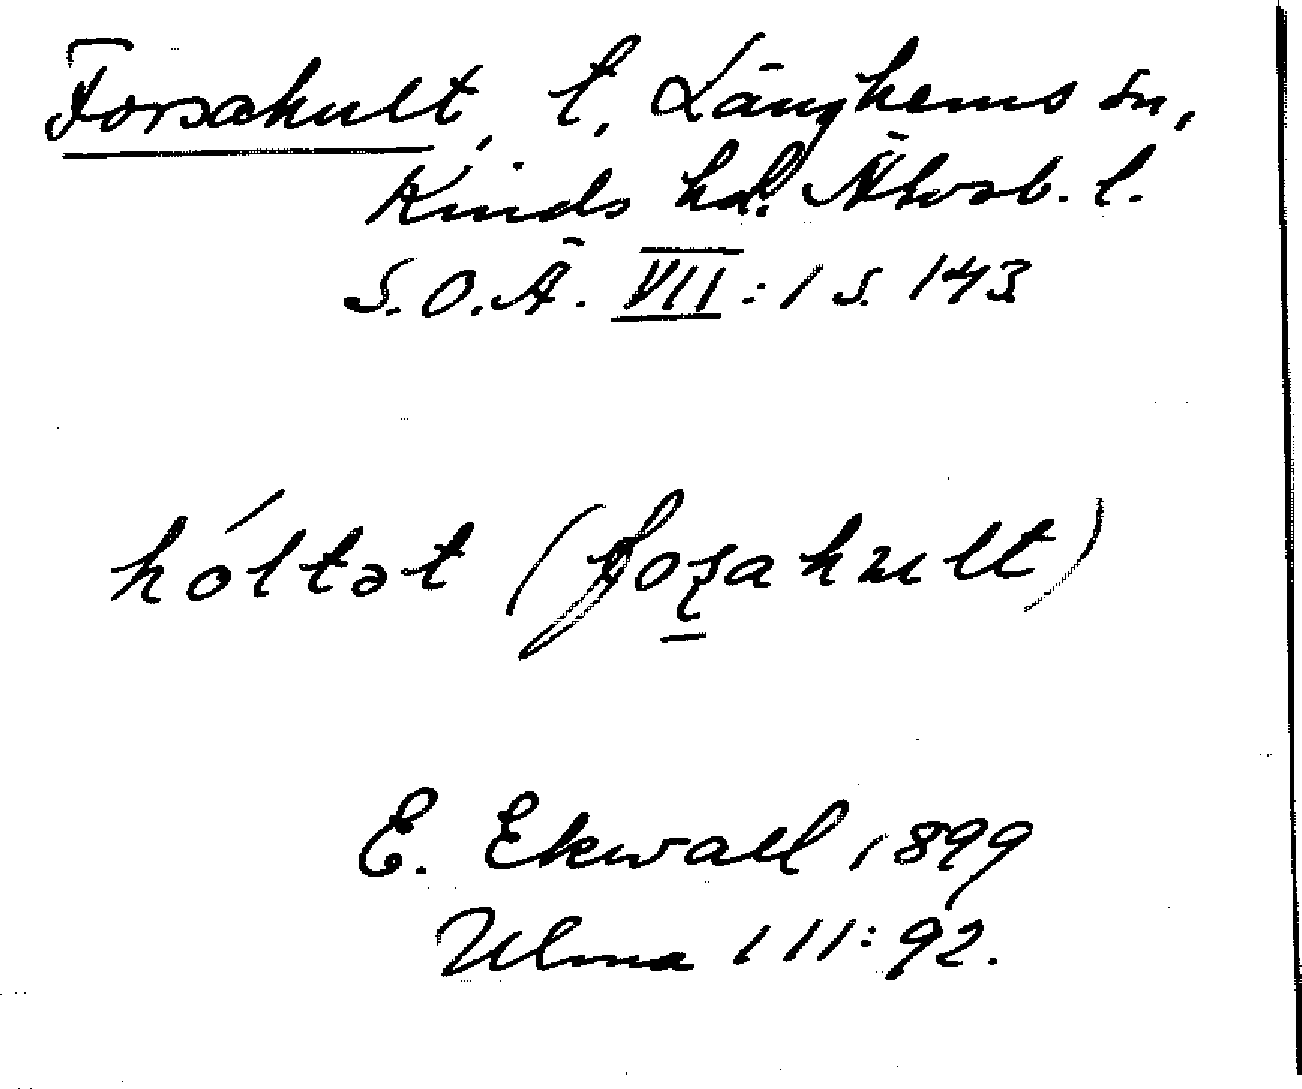 Forsahult, t, Länghems sn,
Kinds hd. Älvsb. l.
S.O.Ä. VII:1 s. 143
hóltət (foʂahult)
E. Ekwall 1899
Ulma 111:92.